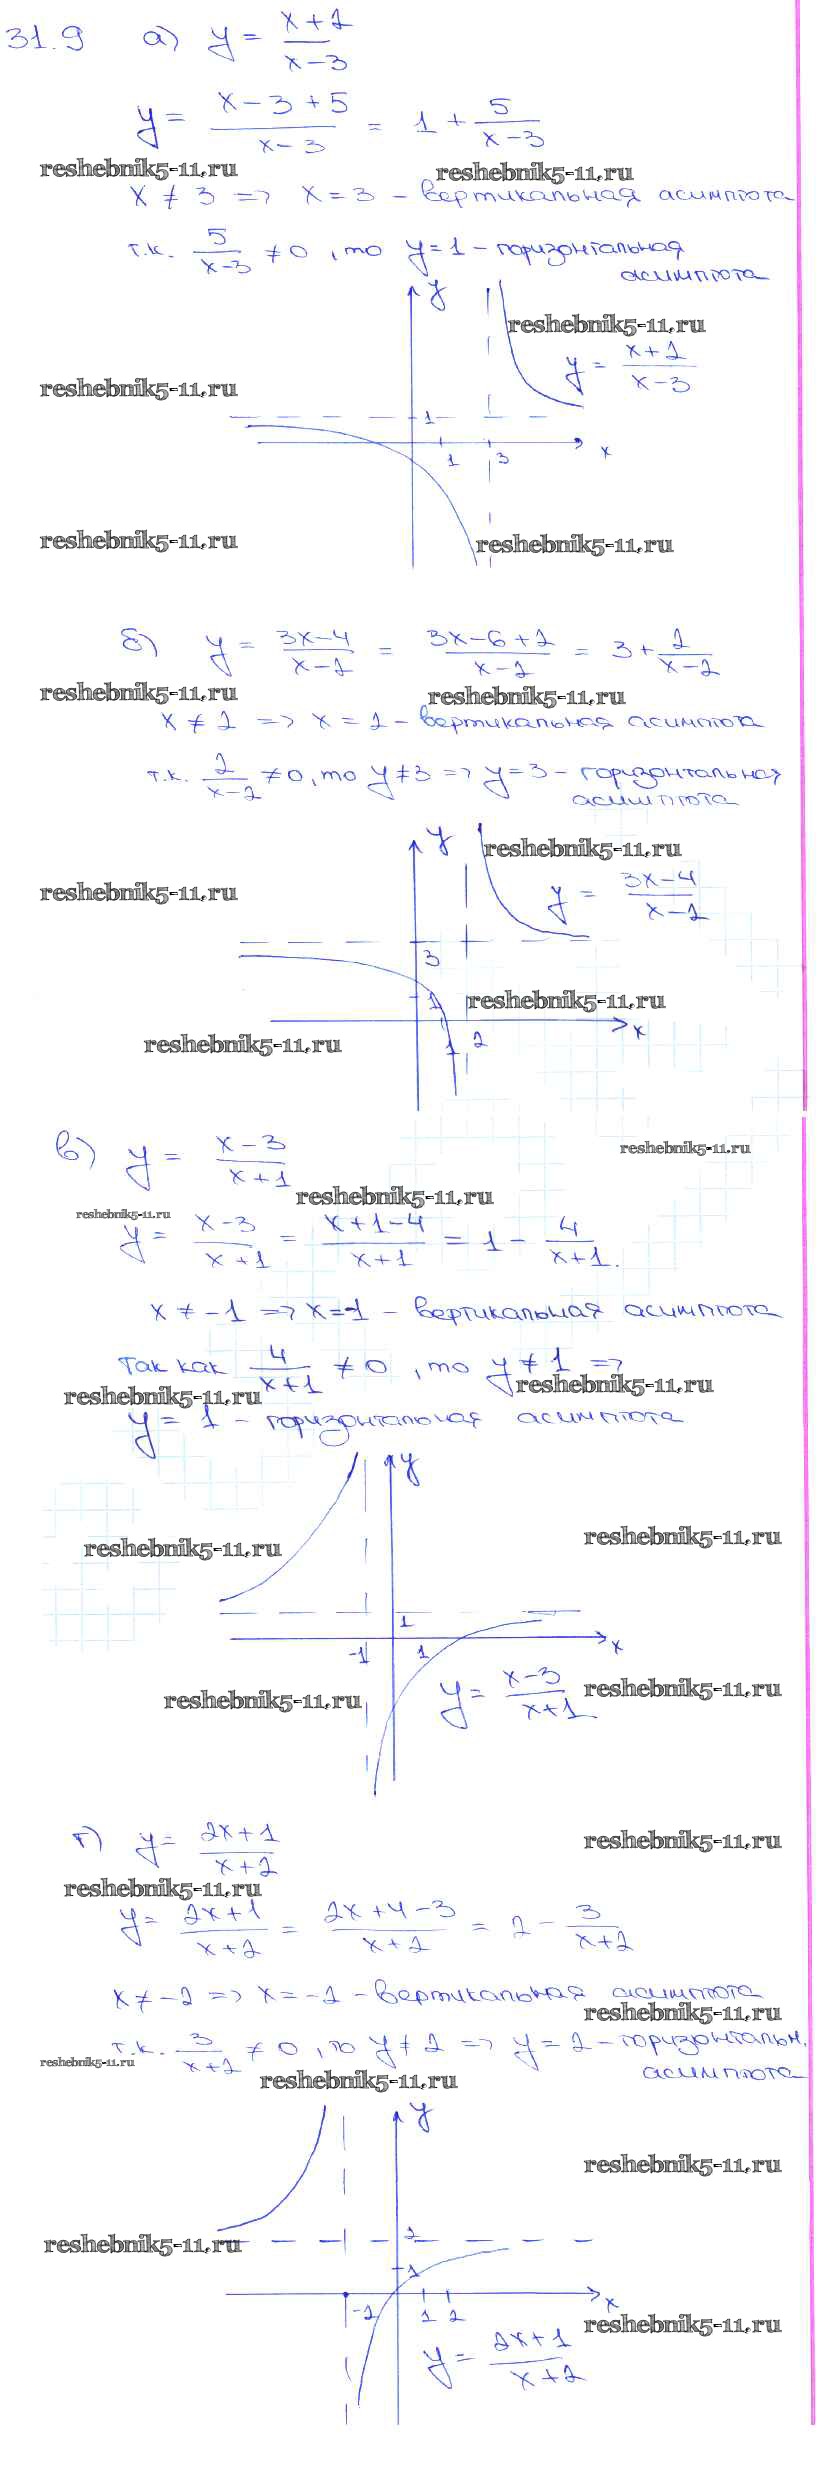 31.9 а) y = (x+2)/(x-3)
y = (x-3+5)/(x-3) = 1 + 5/(x-3)
reshebnik5-11.ru reshebnik5-11.ru
x ≠ 3 => x = 3 - вертикальная асимптота
т.к. 5/(x-3) ≠ 0, то y=1 - горизонтальная
асимптота
y
reshebnik5-11.ru
y = (x+2)/(x-3)
reshebnik5-11.ru
1
1 3 x
reshebnik5-11.ru reshebnik5-11.ru
б) y = (3x-4)/(x-2) = (3x-6+2)/(x-2) = 3 + 2/(x-2)
reshebnik5-11.ru reshebnik5-11.ru
x ≠ 2 => x = 2 - вертикальная асимптота
т.к. 2/(x-2) ≠ 0, то y ≠ 3 => y = 3 - горизонтальная
асимптота
y reshebnik5-11.ru
reshebnik5-11.ru y = (3x-4)/(x-2)
3
1 reshebnik5-11.ru
x
reshebnik5-11.ru 1 2
в) y = (x-3)/(x+1) reshebnik5-11.ru
reshebnik5-11.ru
reshebnik5-11.ru
y = (x-3)/(x+1) = (x+1-4)/(x+1) = 1 - 4/(x+1).
x ≠ -1 => x = -1 - вертикальная асимптота
так как 4/(x+1) ≠ 0, то y ≠ 1 =>
reshebnik5-11.ru reshebnik5-11.ru
y = 1 - горизонтальная асимптота
y
reshebnik5-11.ru reshebnik5-11.ru
1
-1 1 x
reshebnik5-11.ru y = (x-3)/(x+1) reshebnik5-11.ru
г) y = (2x+1)/(x+2) reshebnik5-11.ru
reshebnik5-11.ru
y = (2x+1)/(x+2) = (2x+4-3)/(x+2) = 2 - 3/(x+2)
x ≠ -2 => x = -2 - вертикальная асимптота
reshebnik5-11.ru
т.к. 3/(x+2) ≠ 0, то y ≠ 2 => y = 2 - горизонтальн.
reshebnik5-11.ru асимптота
reshebnik5-11.ru
y
reshebnik5-11.ru
reshebnik5-11.ru 2
1
-2 1 2 x
reshebnik5-11.ru
y = (2x+1)/(x+2)